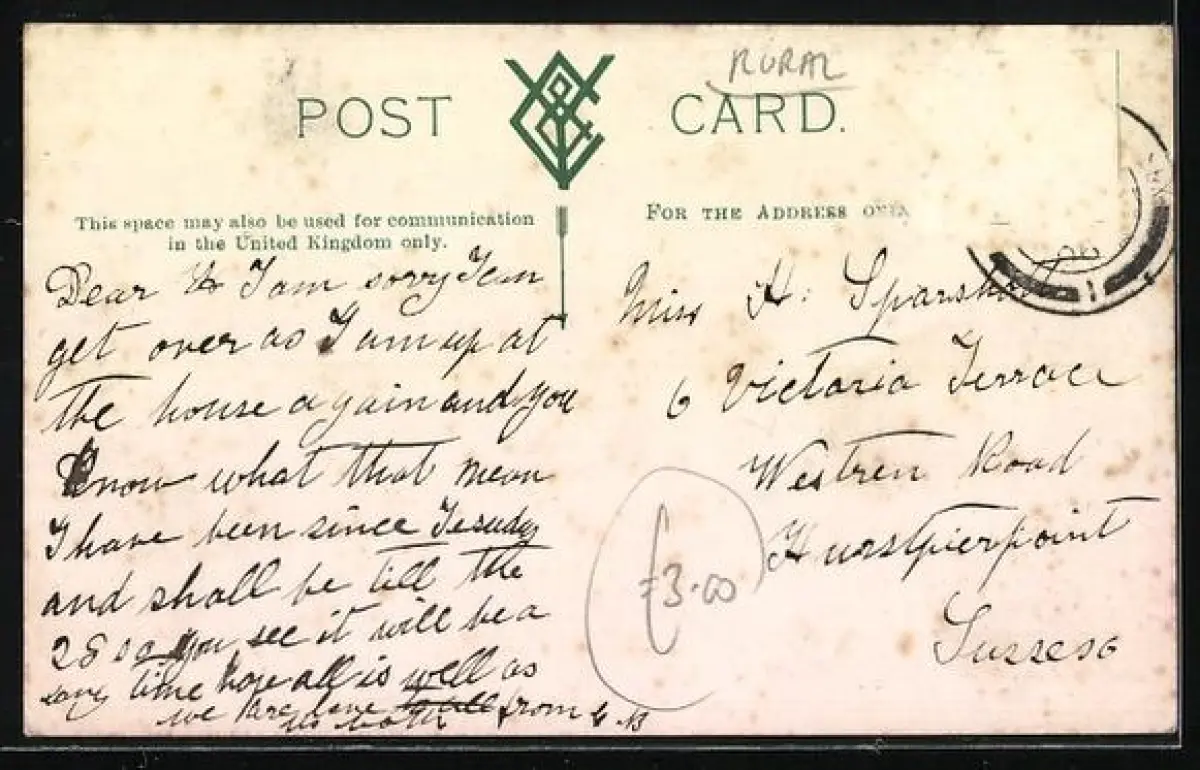 RURAL
POST CARD.
This space may also be used for communication
in the United Kingdom only.
FOR THE ADDRESS ONLY.
Dear H I am sorry I can
get over as I am up at
the house again and you
know what that mean
I have been since Tesuday
and shall be till the
28 so you see it will be a
long time hope all is well as
we are
from G B
Miss H. Sparshott
6 Victoria Terrace
Westren Road
Hurstpierpoint
Sussex
£3.00